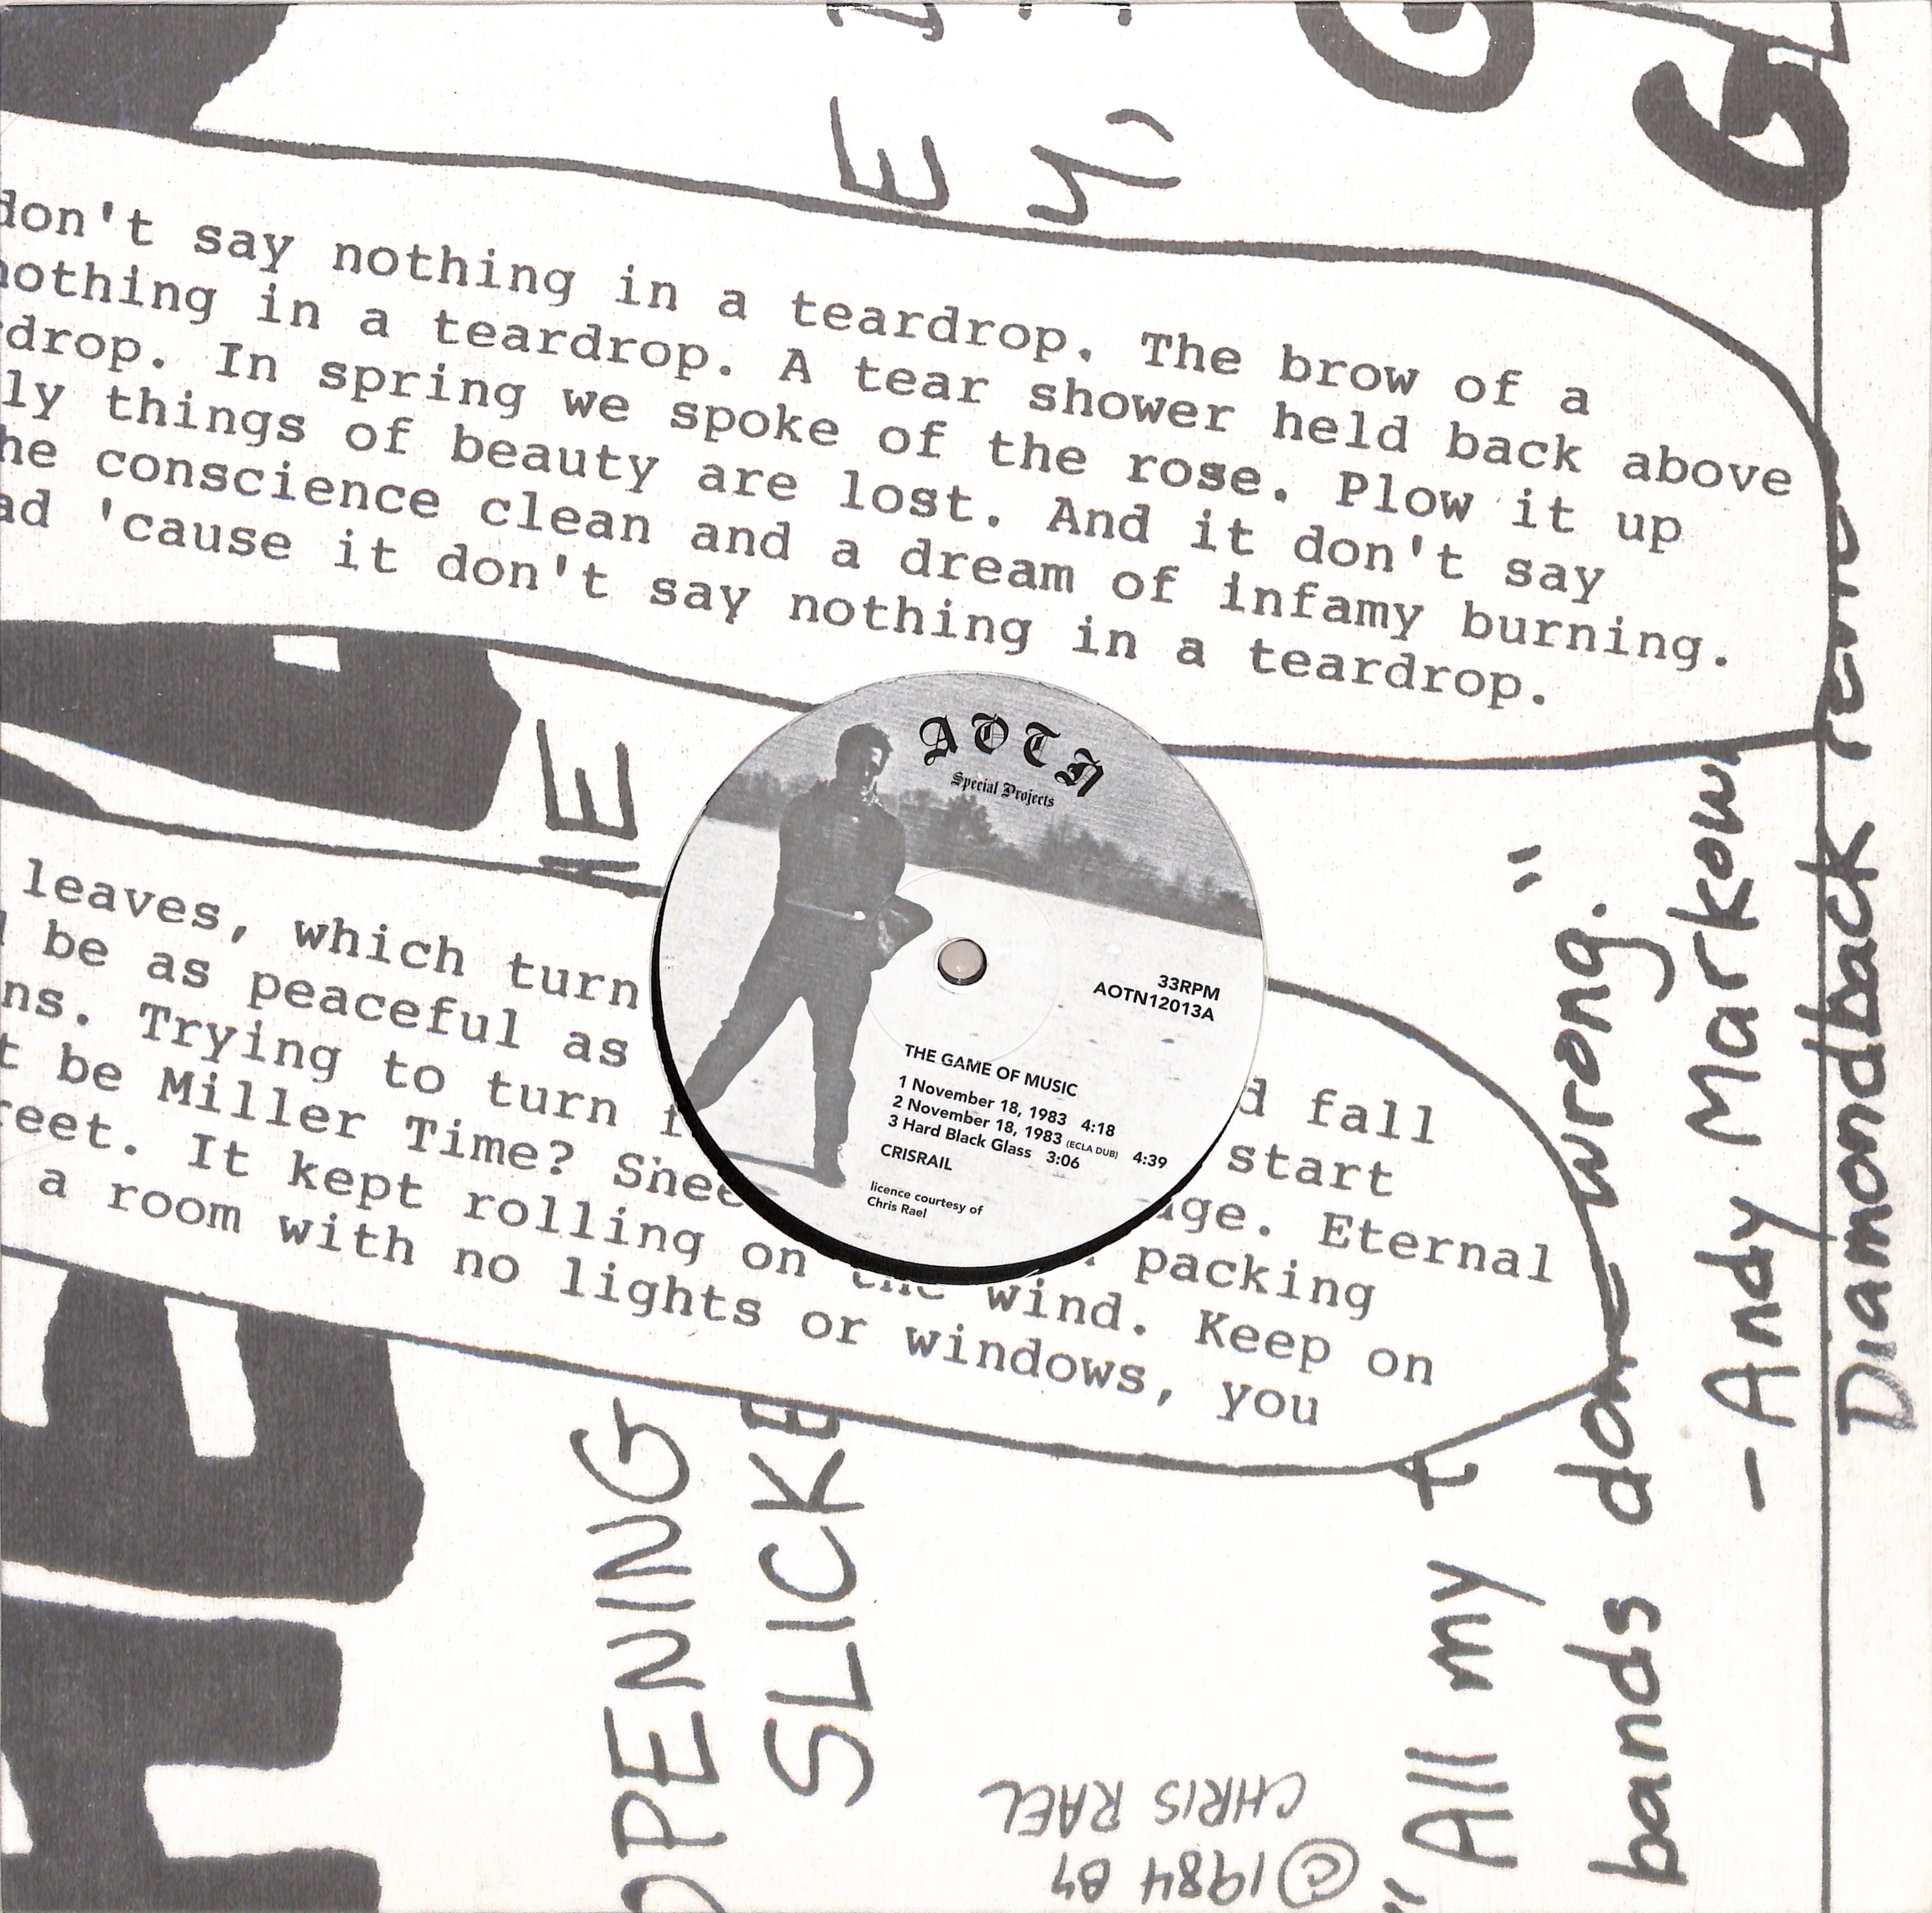 don't say nothing in a teardrop. The brow of a
nothing in a teardrop. A tear shower held back above
drop. In spring we spoke of the rose. Plow it up
ly things of beauty are lost. And it don't say
he conscience clean and a dream of infamy burning.
ad 'cause it don't say nothing in a teardrop.
AOTN
Special Projects
33RPM
AOTN12013A
THE GAME OF MUSIC
1 November 18, 1983 4:18
2 November 18, 1983 (ECLA DUB) 4:39
3 Hard Black Glass 3:06
CRISRAIL
licence courtesy of
Chris Rael
leaves, which turn d fall
be as peaceful as start
ns. Trying to turn age. Eternal
t be Miller Time? packing
reet. It kept rolling on the wind. Keep on
a room with no lights or windows, you
OPENING
SLICKE
"All my
bands do wrong."
- Andy Markow
Diamondback
©1984 BY
CHRIS RAEL